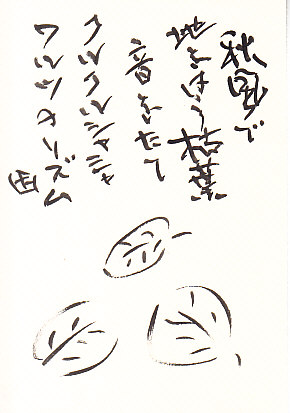 秋風で
地をはう枯葉
音をたて
クルクルシャシャ
ワルツのリズム